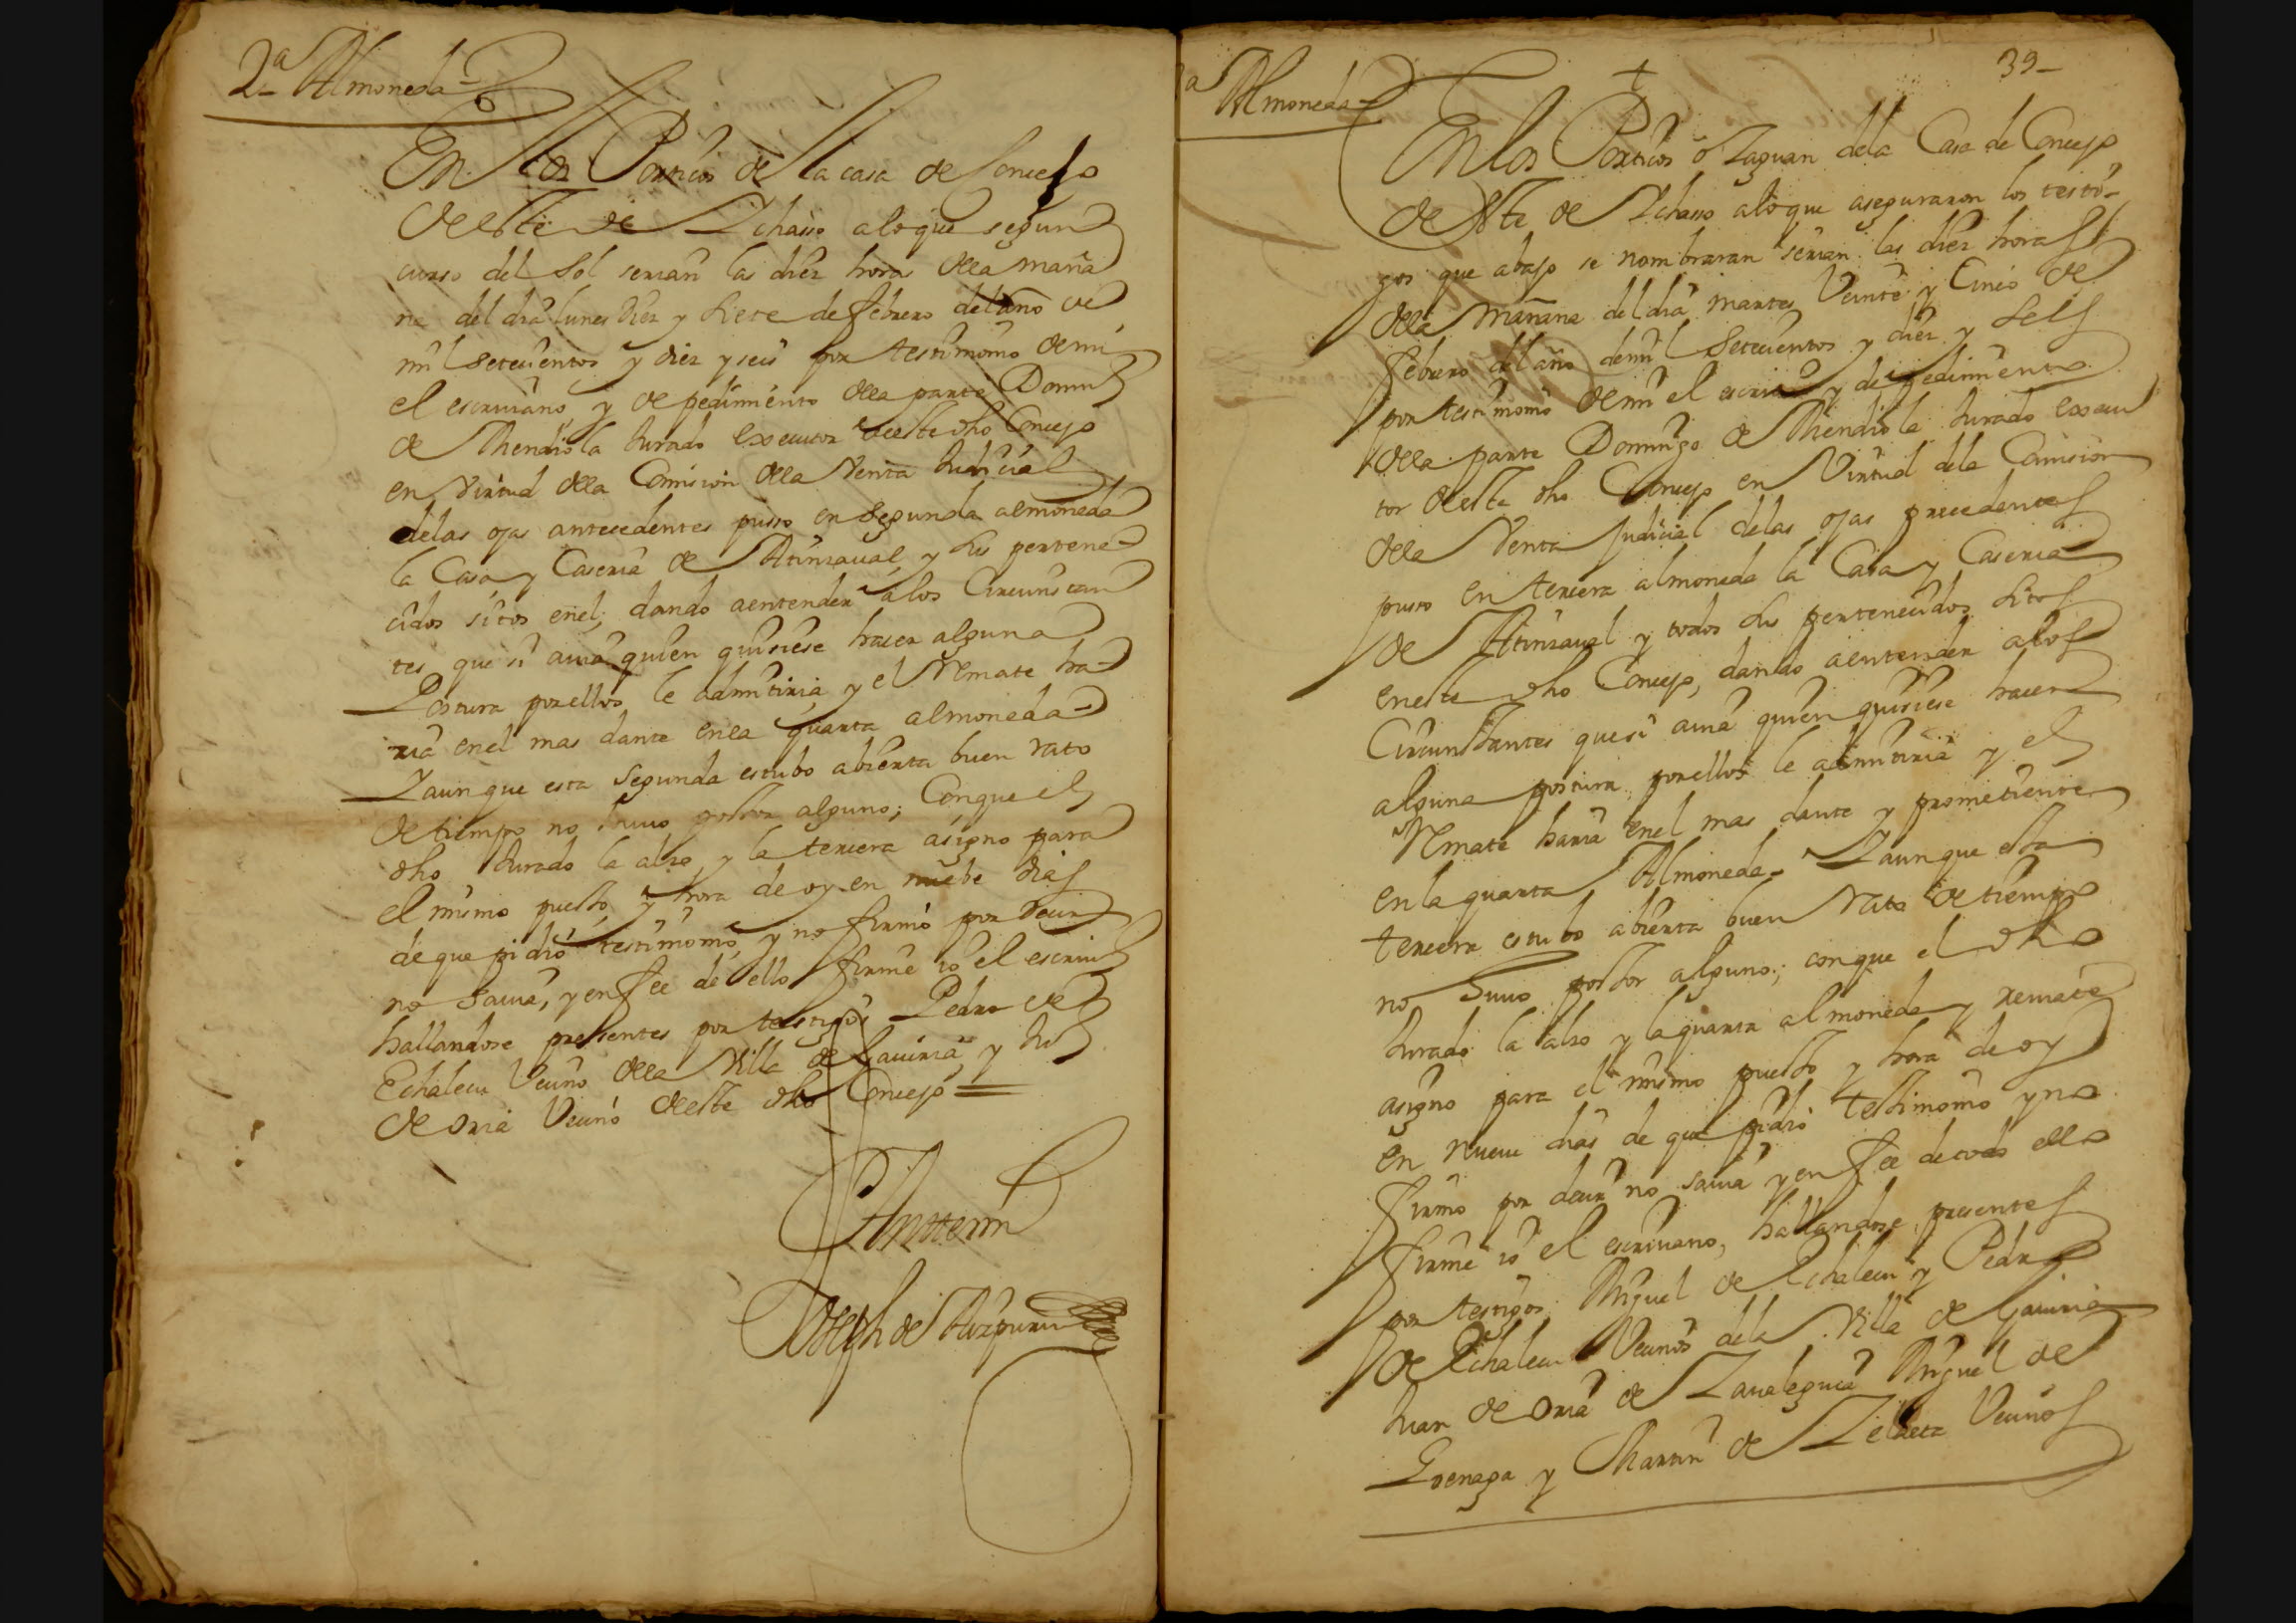 2ª Almoneda
En los Porticos de la casa de Concejo
de este de Ichasso alo que segun
curso del Sol serian las diez horas della maña
na del dia lunes diez y siete de febrero del año de
mil setecientos y diez y seis por testimonio de mi
el escriuano, y de pedimiento della parte Domin
de Mendiola Jurado executor deeste dho Concejo
en Virtud della Comision della Venta Judicial
delas ojas antecedentes puso en segunda almoneda
la Casa y Caseria de Atinsaual, y sus pertene
cidos sitos enel; dando aentender alos Circunstan
tes que si auia quien quisiese hacer alguna
Postura porellos, le admitiria, y el Remate ha
ria enel mas dante enla quarta almoneda
Y aunque esta segunda estubo abierta buen rato
de tiempo no huuo postor alguno; Conque el
dho Jurado la alzo, y la tercera asigno para
el mismo puesto, y hora de oy en nuebe dias
de que pidio testimonio, y no firmó por decir
no sauia, y en fee de ello firmé io el escriu
hallandose presentes por testigos Pedro de
Echalecu Vecino della Villa de Gauiria, y Ju
de Oria Vecino deeste dho Concejo
Ante mi
Joseph de Aizpuru
ª Almoneda
39
En los Porticos ó Zaguan dela Casa de Concejo
de este de Ichasso alo que aseguraron los testi
gos que abajo se nombraran serian las diez horas
della mañana del dia martes Veinte y Cinco de
febrero del año demil setecientos y diez y seis
por testimonio de mi el escriuº y de pedimiento
della parte Domingo de Mendiola Jurado execu
tor deeste dho Concejo en Virtud dela Comision
della Venta Judicial delas ojas precedentes
puso en tercera almoneda la Casa y Caseria
de Atinsaual y todos sus pertenecidos sitos
eneste dho Concejo, dando aentender alos
Circunstantes quesi auia quien quisiese hacer
alguna postura porellos le admitiria y el
Remate haria enel mas dante y prometiente
en la quarta Almoneda. Y aunque esta
tercera estubo abierta buen Rato de tiempo
no huuo postor alguno; conque el dho
Jurado la alzo y laquarta almoneda y remate
asigno para el mismo puesto y hora de oy
en nueue dias de que pidio testimonio y no
firmo por decir no sauia y en fee de todo ello
firmé io el escriuano, hallandose presentes
por testigos Miguel de Echalecu y Pedro
de Echalecu Vecinos dela Villa de Gauiria
Juan de Oria de Zaualeguia Miguel de
Goenaga y Martin de Zelaeta Vecinos